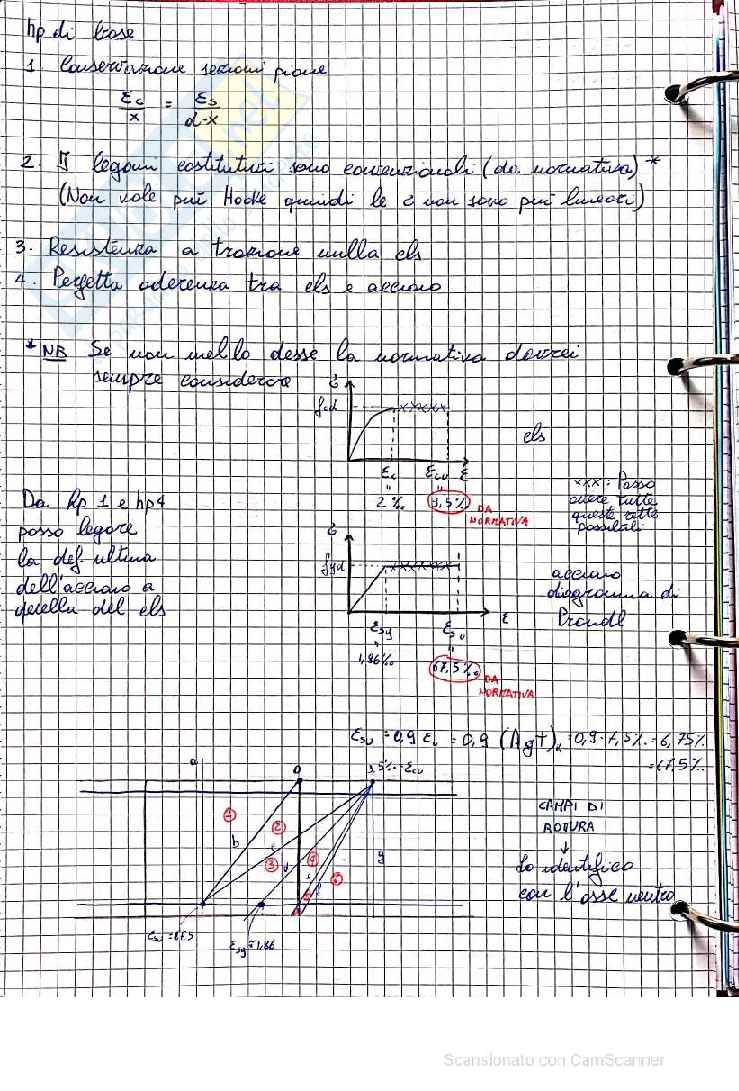 hp di base
1. Conservazione sezioni piane
εc/x = εs/d-x
2. I legami costitutivi sono convenzionali (da normativa)*
(Non vale più Hooke quindi le σ non sono più lineari)
3. Resistenza a trazione nulla cls
4. Perfetta aderenza tra cls e acciaio
* NB Se non me lo desse la normativa dovrei
sempre considerare
σ
fcd
xxxxx
cls
εc
εcu
ε
"
"
2‰
3,5‰
DA
NORMATIVA
xxx: Posso
avere tutte
queste rette
possibili
Da hp 1 e hp4
posso legare
la def. ultima
dell'acciaio a
quella del cls
σ
fyd
acciaio
diagramma di
Prandtl
εsy
εsu
ε
"
"
1,96‰
67,5‰
DA
NORMATIVA
εsu = 0,9 εu = 0,9 (Agt)k = 0,9·7,5% = 6,75%
= 67,5‰
a
0
3,5‰ = εcu
1
2
b
c
3
d
4
y
5
6
CAMPI DI
ROTTURA
↓
Lo identifico
con l'asse neutro
εsu = 67,5
εsy = 1,96
Scansionato con CamScanner